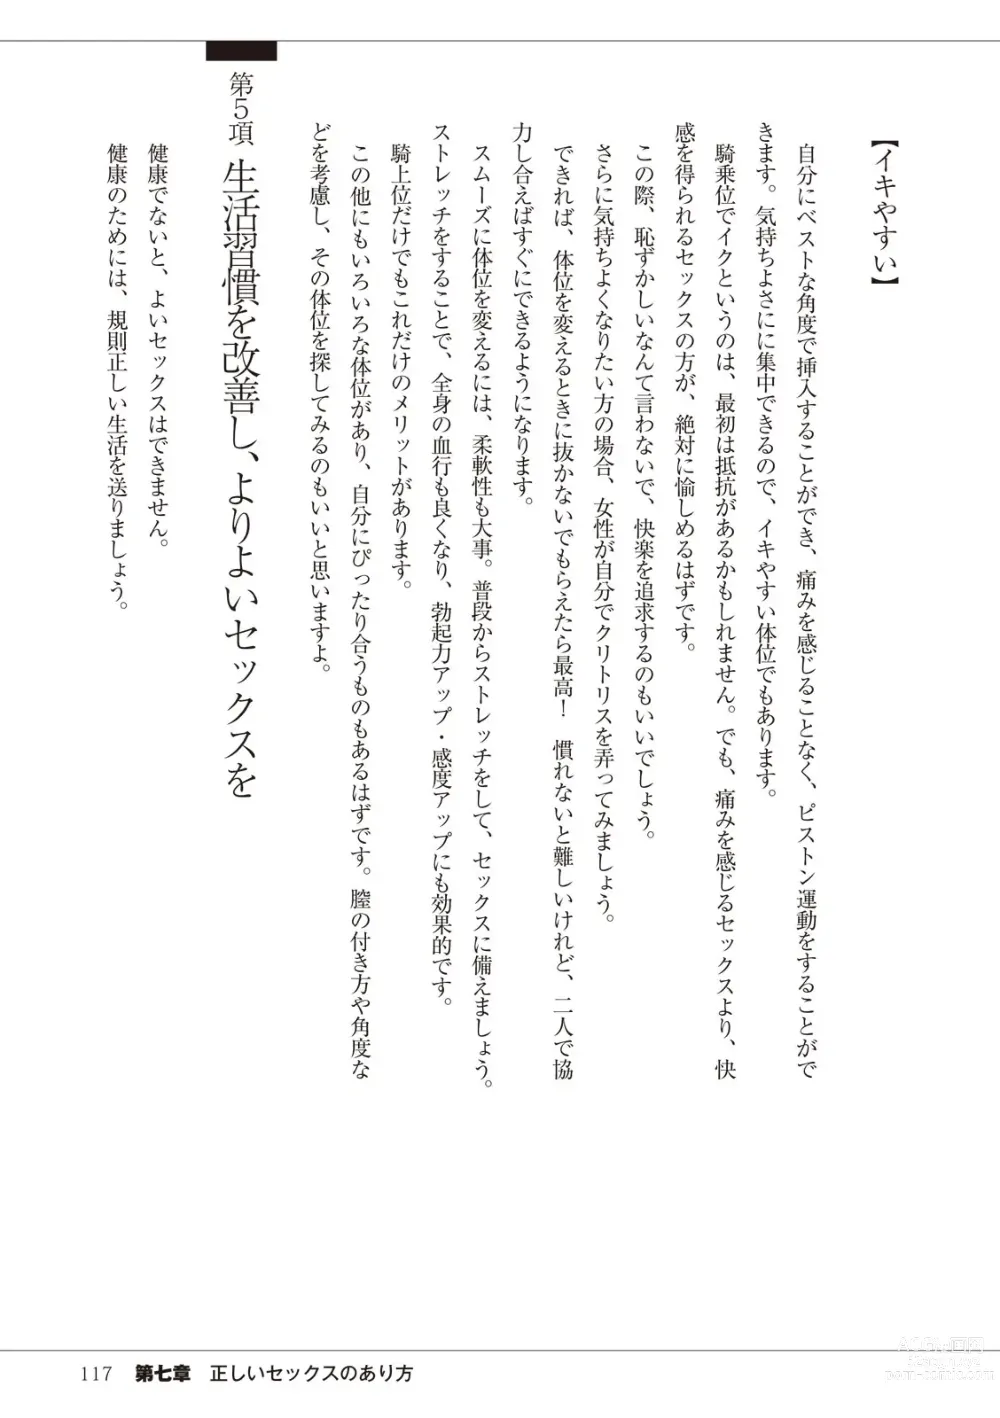 【イキやすい】
自分にベストな角度で挿入することができ、痛みを感じることなく、ピストン運動をすることがで
きます。気持ちよさにに集中できるので、イキやすい体位でもあります。
騎乗位でイクというのは、最初は抵抗があるかもしれません。でも、痛みを感じるセックスより、快
感を得られるセックスの方が、絶対に愉しめるはずです。
この際、恥ずかしいなんて言わないで、快楽を追求するのもいいでしょう。
さらに気持ちよくなりたい方の場合、女性が自分でクリトリスを弄ってみましょう。
できれば、体位を変えるときに抜かないでもらえたら最高！　慣れないと難しいけれど、二人で協
力し合えばすぐにできるようになります。
スムーズに体位を変えるには、柔軟性も大事。普段からストレッチをして、セックスに備えましょう。
ストレッチをすることで、全身の血行も良くなり、勃起力アップ・感度アップにも効果的です。
騎上位だけでもこれだけのメリットがあります。
この他にもいろいろな体位があり、自分にぴったり合うものもあるはずです。膣の付き方や角度な
どを考慮し、その体位を探してみるのもいいと思いますよ。
第5項 生活習慣を改善し、よりよいセックスを
健康でないと、よいセックスはできません。
健康のためには、規則正しい生活を送りましょう。
117 第七章 正しいセックスのあり方